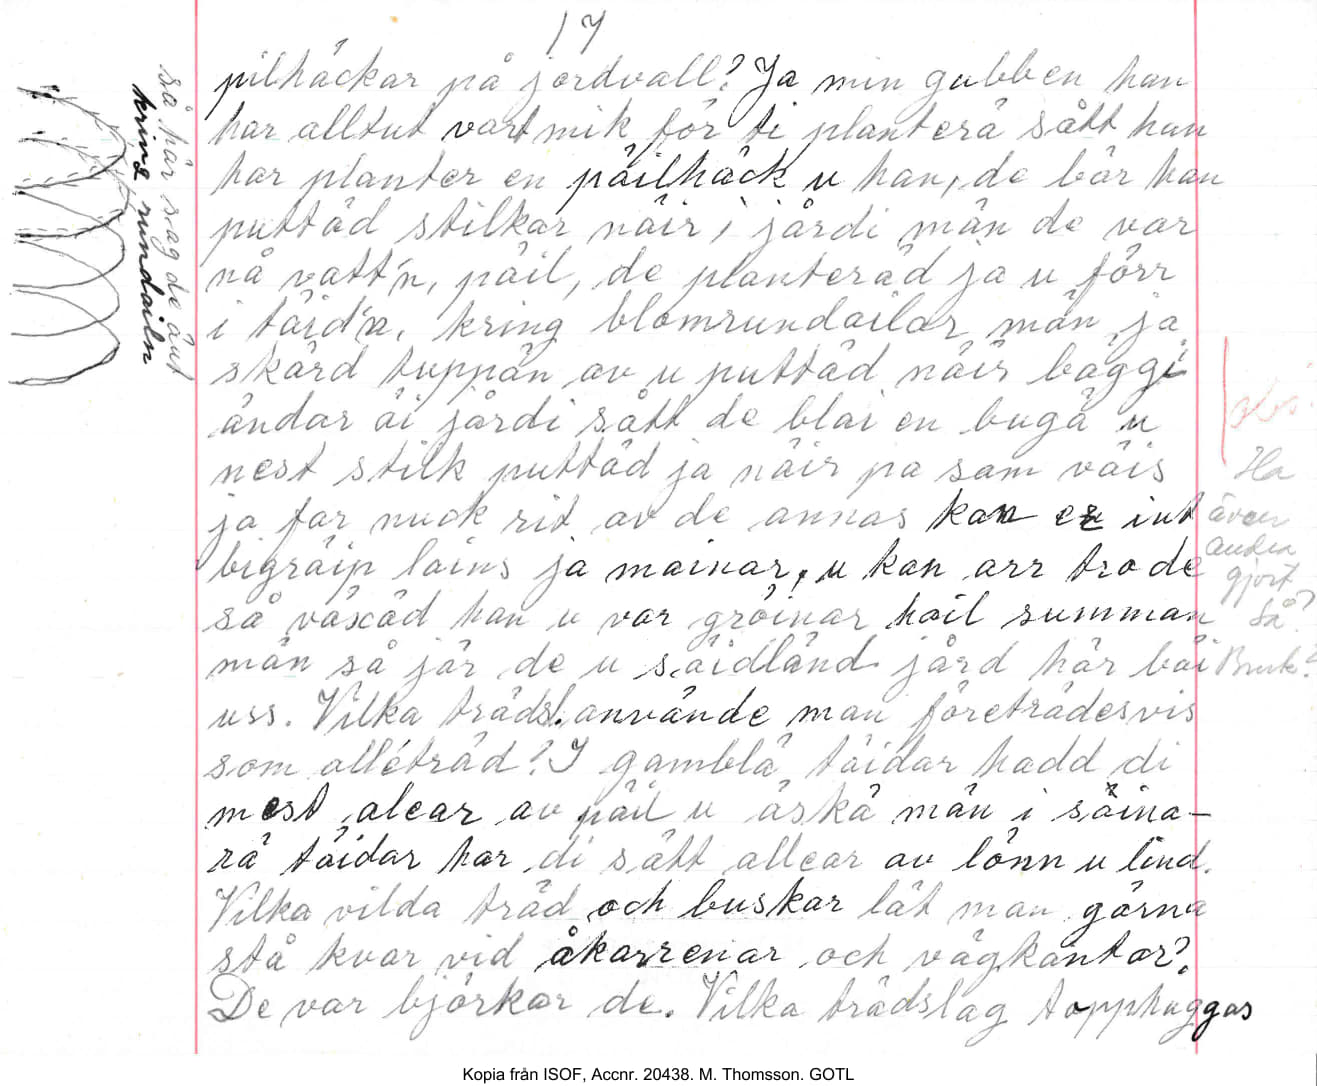 17
pilhäckar på jordvall? Ja min gubben han
har alltut vart mik för ti planterä sått han
har planter en päilhäck u han, de bär han
puttäd stilkar näir i jårdi män de var
nå vatt'n, päil, de planteräd ja u förr
i täid'n, kring blomrundailar män ja
skärd tuppän av u puttäd näir bäggi
ändar äi jårdi sått de blai en bugä u
nest stilk puttäd ja näir pa sam väis
ja far nuck rit av de annas kan er int
bigräip lains ja mainar, u kan arr tro de
så växäd han u var gröinar hail summan
män så jär de u säidländ jård här bäi
uss. Vilka trädsl. använde man företrädesvis
som alléträd? I gamblä täidar hadd di
mest alear av päil u äskä män i säina-
rä täidar har di sått allear av lönn u lind.
Vilka vilda träd och buskar lät man gärna
stå kvar vid åkarrenar och vägkantar?
De var björkar de. Vilka trädslag topphuggas
så här sag de äut
kring rundailn
Ha
även
andra
gjort
så?
Bruk?
Kopia från ISOF, Accnr. 20438. M. Thomsson. GOTL